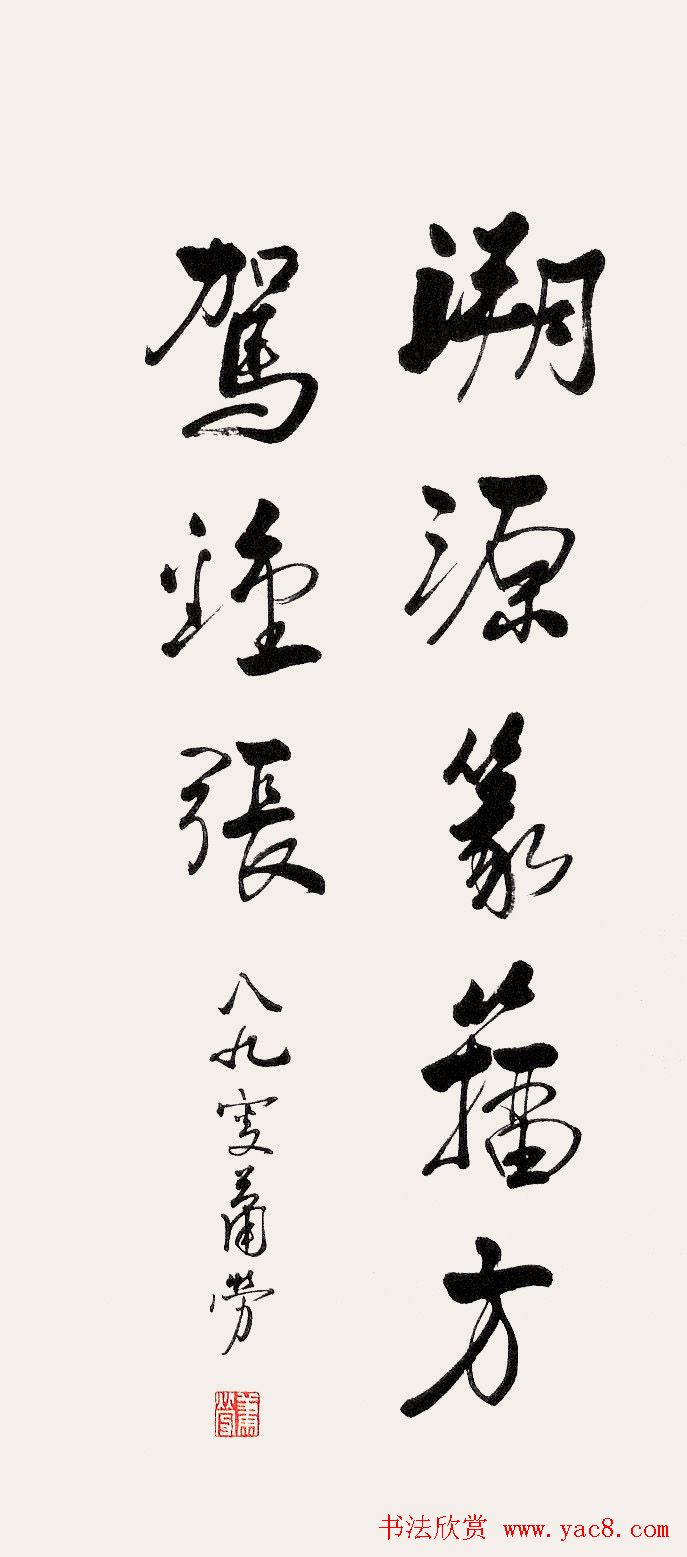 溯源篆籀方
駕鍾張
八九叟蕭勞
蕭勞
书法欣赏 www.yac8.com